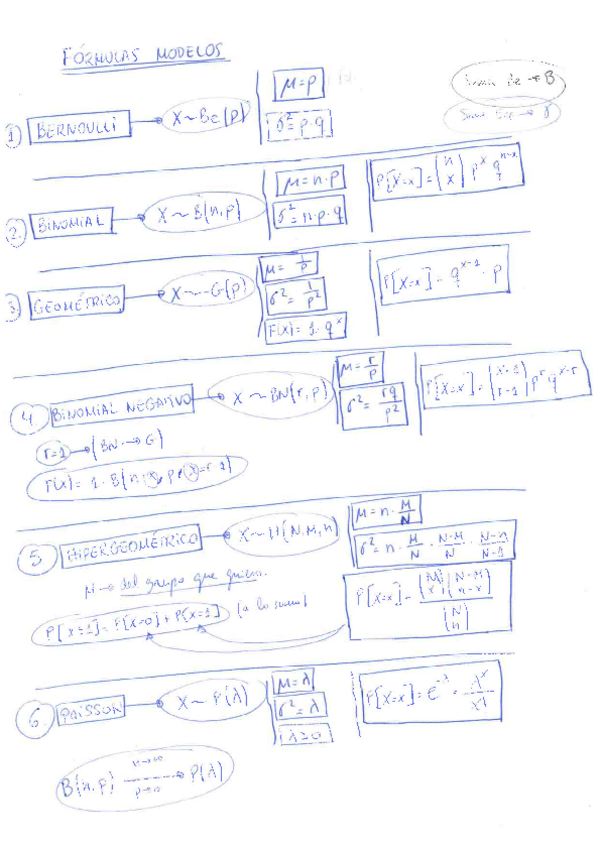 FÓRMULAS MODELOS
Suma Be → B
Suma
1) BERNOULLI → X ~ Be(p)
μ = p
σ² = p·q
2. BINOMIAL → X ~ B(n,p)
μ = n·p
σ² = n·p·q
P[X=x] = (n x) p^x q^n-x
3) GEOMÉTRICO → X ~ G(p)
μ = 1/p
σ² = 1/p²
F(x) = 1 - q^x
P[X=x] = q^x-1 · p
4 BINOMIAL NEGATIVO → X ~ BN(r,p)
μ = r/p
σ² = rq/p²
P[X=x] = (x-1 r-1) p^r q^x-r
r=1 → (BN → G)
F(x) = 1 - B(n
5 HIPERGEOMÉTRICO → X ~ H(N,M,n)
μ = n · M/N
σ² = n · M/N · N-M/N · N-n/N-1
M → del grupo que quiero.
P[X=x] = (M x)(N-M n-x) / (N n)
P[x≤1] = P[X=0] + P[X=1] (a lo sumo)
6. POISSON → X ~ P(λ)
μ = λ
σ² = λ
λ>0
P[X=x] = e^-λ · λ^x/x!
B(n,p) n→∞ p→0 → P(λ)